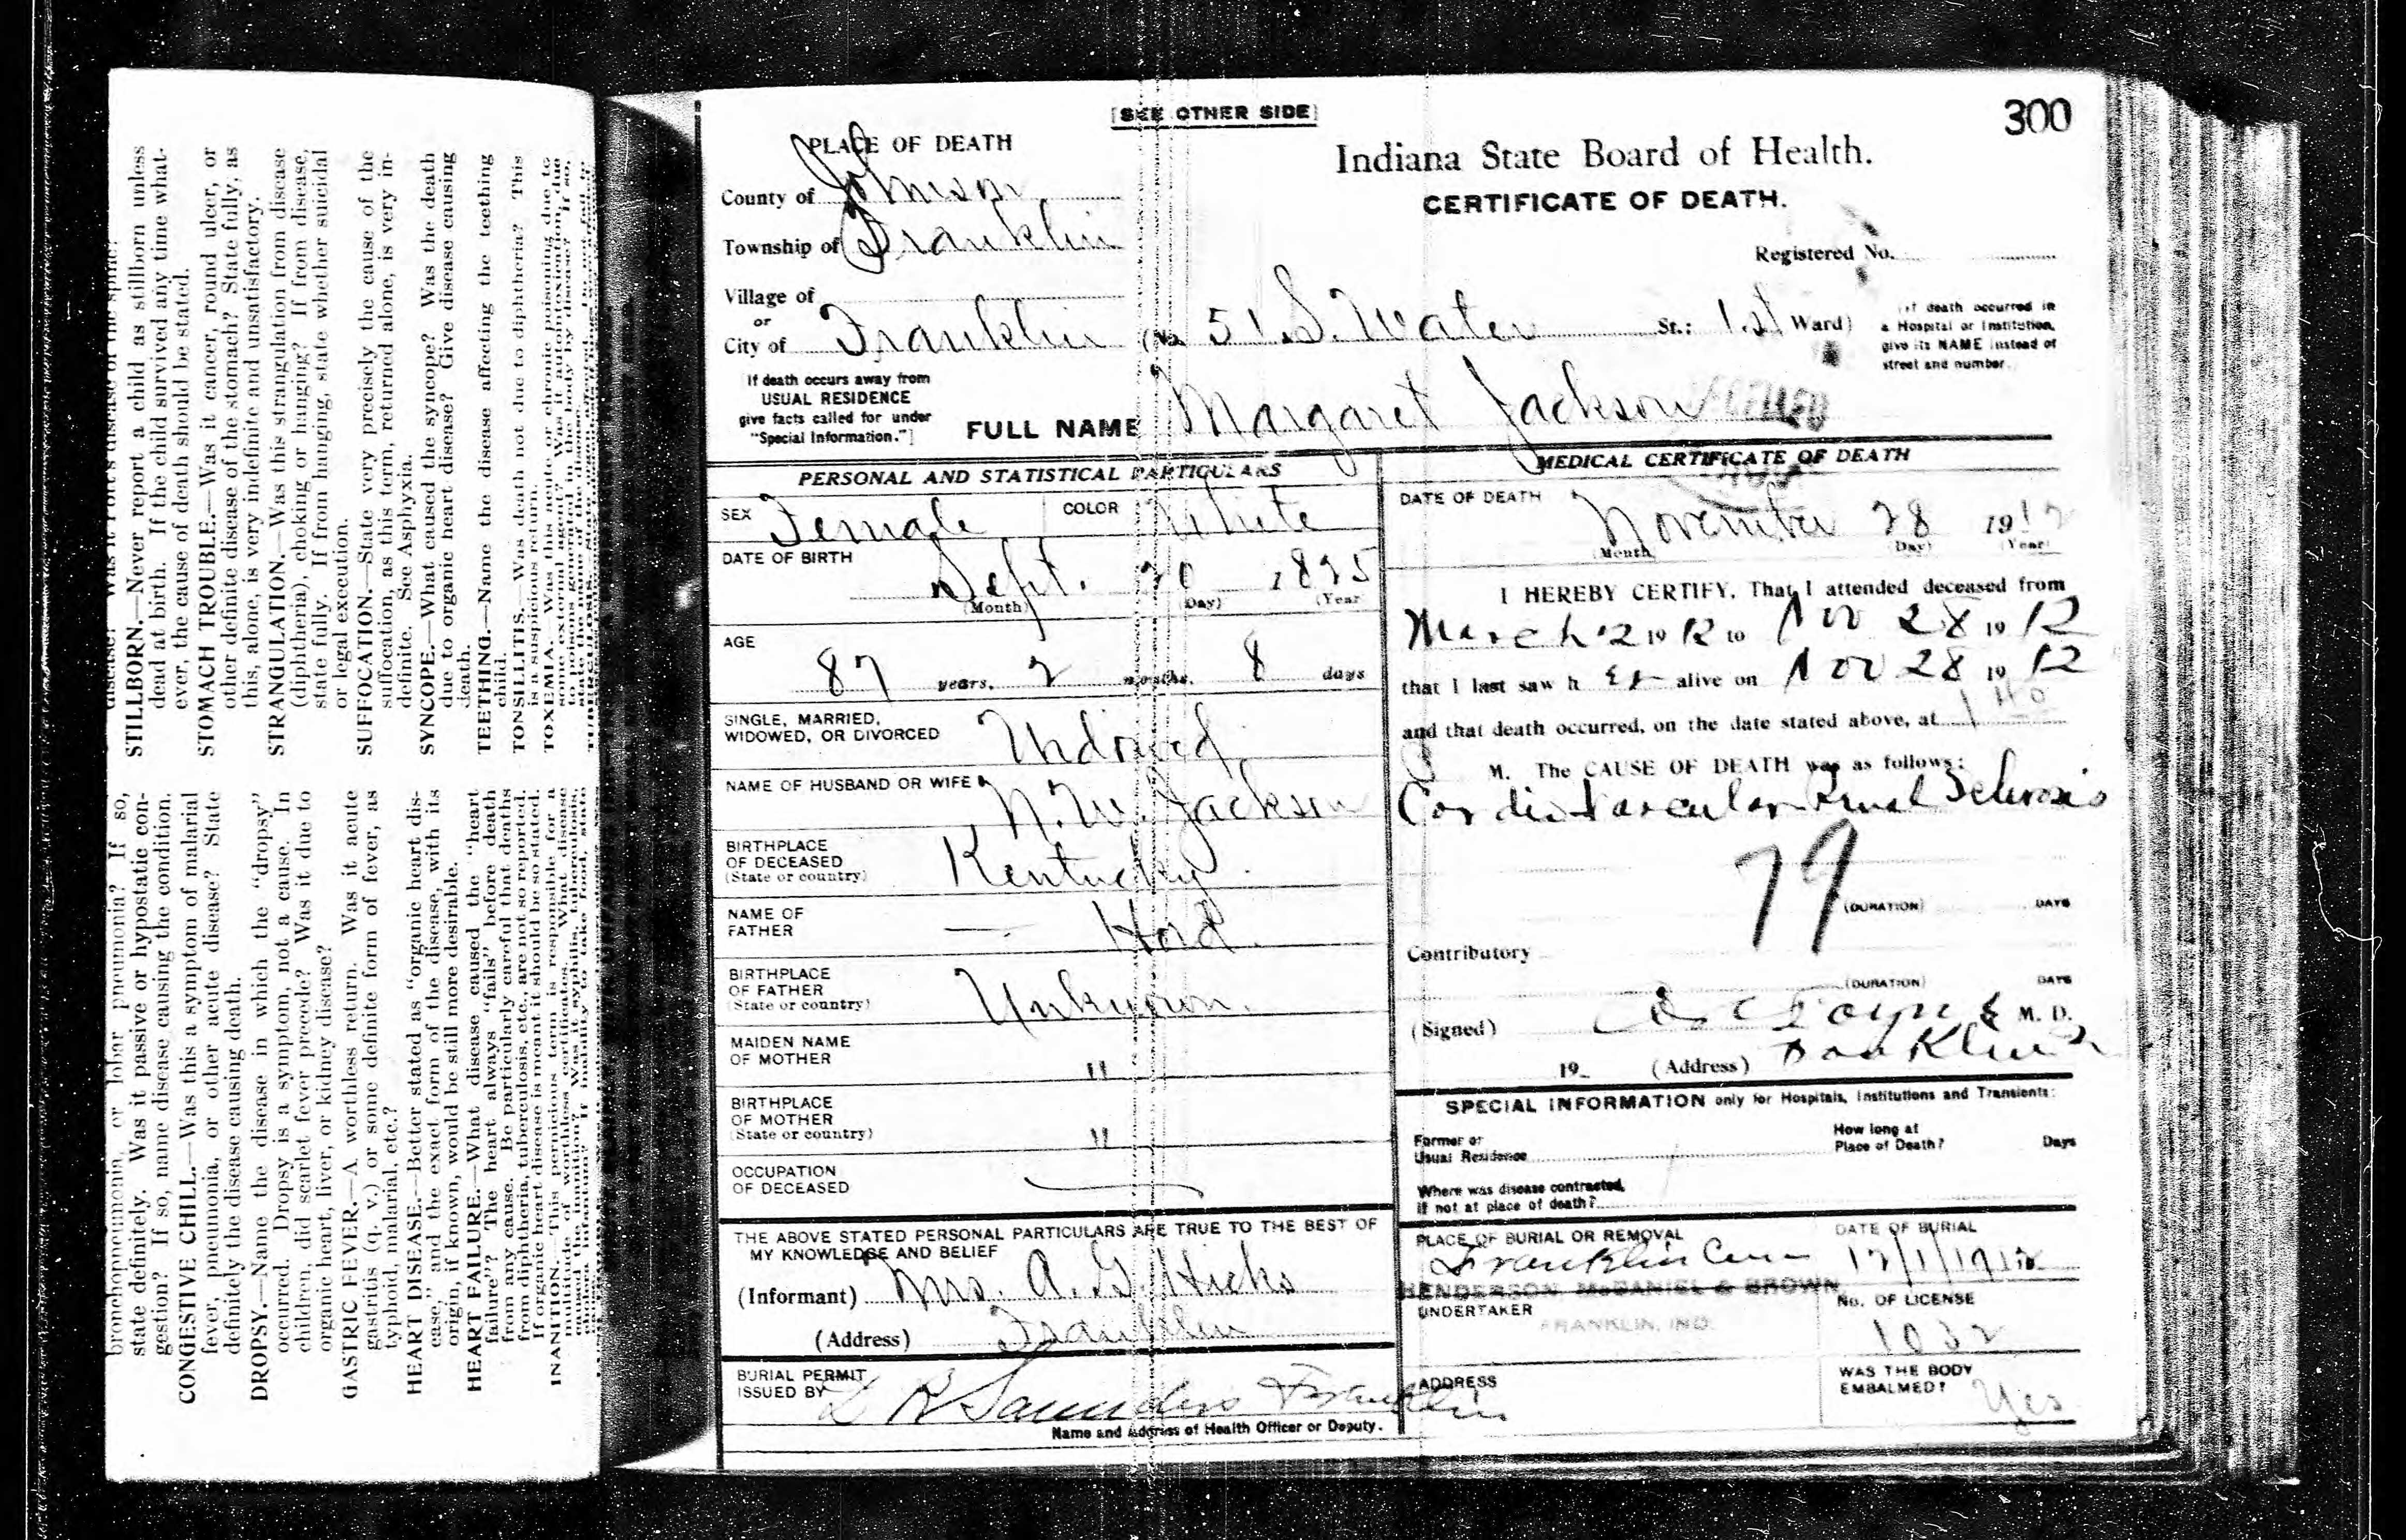 disease? Was it Pott's disease of the spine?
STILLBORN.—Never report a child as stillborn unless
dead at birth. If the child survived any time what-
ever, the cause of death should be stated.
STOMACH TROUBLE.—Was it cancer, round ulcer, or
other definite disease of the stomach? State fully, as
this, alone, is very indefinite and unsatisfactory.
STRANGULATION.—Was this strangulation from disease
(diphtheria), choking or hanging? If from disease,
state fully. If from hanging, state whether suicidal
or legal execution.
SUFFOCATION.—State very precisely the cause of the
suffocation, as this term, returned alone, is very in-
definite. See Asphyxia.
SYNCOPE.—What caused the syncope? Was the death
due to organic heart disease? Give disease causing
death.
TEETHING.—Name the disease affecting the teething
child.
TONSILLITIS.—Was death not due to diphtheria? This
is a suspicious return.
TOXEMIA.—Was this acute or chronic poisoning due to
bronchopneumonia, or lobar pneumonia? If so,
state definitely. Was it passive or hypostatic con-
gestion? If so, name disease causing the condition.
CONGESTIVE CHILL.—Was this a symptom of malarial
fever, pneumonia, or other acute disease? State
definitely the disease causing death.
DROPSY.—Name the disease in which the "dropsy"
occurred. Dropsy is a symptom, not a cause. In
children, did scarlet fever precede? Was it due to
organic heart, liver, or kidney disease?
GASTRIC FEVER.—A worthless return. Was it acute
gastritis (q. v.) or some definite form of fever, as
typhoid, malarial, etc.?
HEART DISEASE.—Better stated as "organic heart dis-
ease," and the exact form of the disease, with its
origin, if known, would be still more desirable.
HEART FAILURE.—What disease caused the "heart
failure"? The heart always "fails" before death
from any cause. Be particularly careful that deaths
from diphtheria, tuberculosis, etc., are not so reported.
If organic heart disease is meant it should be so stated.
INANITION.—This pernicious term is responsible for a
multitude of worthless certificates. What disease
[SEE OTHER SIDE]
300
PLACE OF DEATH
Indiana State Board of Health.
CERTIFICATE OF DEATH.
County of Johnson
Township of Franklin
Registered No.
Village of
or
City of Franklin (No. 51 S. Water St.; 1st Ward)
If death occurred in
a Hospital or Institution,
give its NAME instead of
street and number.
If death occurs away from
USUAL RESIDENCE
give facts called for under
"Special Information."]
FULL NAME Margaret Jackson
PERSONAL AND STATISTICAL PARTICULARS
SEX Female COLOR White
DATE OF BIRTH
Sept. 20 1825
(Month) (Day) (Year
AGE
87 years, 2 months, 8 days
SINGLE, MARRIED,
WIDOWED, OR DIVORCED Widowed
NAME OF HUSBAND OR WIFE
N. W. Jackson
BIRTHPLACE
OF DECEASED
(State or country) Kentucky
NAME OF
FATHER — Hord
BIRTHPLACE
OF FATHER
(State or country) Unknown.
MAIDEN NAME
OF MOTHER "
BIRTHPLACE
OF MOTHER
(State or country) "
OCCUPATION
OF DECEASED
THE ABOVE STATED PERSONAL PARTICULARS ARE TRUE TO THE BEST OF
MY KNOWLEDGE AND BELIEF
(Informant) Mrs. A. G. Hicks
(Address) Franklin
BURIAL PERMIT
ISSUED BY L R Saunders Franklin
Name and Address of Health Officer or Deputy.
MEDICAL CERTIFICATE OF DEATH
DATE OF DEATH
November 28 1912
(Month (Day) (Year)
I HEREBY CERTIFY, That I attended deceased from
March 2 1912 to Nov 28 1912
that I last saw her alive on Nov 28 1912
and that death occurred, on the date stated above, at 1 40
M. The CAUSE OF DEATH was as follows:
Cardio Vascular Renal Sclerosis
79
(DURATION) DAYS
Contributory
(DURATION) DAYS
(Signed) M. D.
19 (Address) Franklin
SPECIAL INFORMATION only for Hospitals, Institutions and Transients:
Former or
Usual Residence
How long at
Place of Death? Days
Where was disease contracted,
if not at place of death?
PLACE OF BURIAL OR REMOVAL
Franklin Cem
DATE OF BURIAL
12/1/1912
HENDERSON, McDANIEL & BROWN
UNDERTAKER
FRANKLIN, IND.
No. OF LICENSE
1032
ADDRESS
WAS THE BODY
EMBALMED? Yes